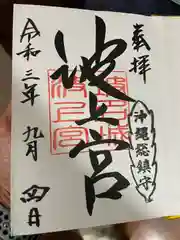 奉拝
沖縄総鎮守
波上宮
令和三年九月四日